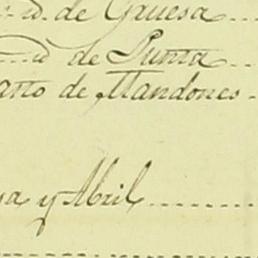 de Gruesa
de Punta
de Mandones
y Abril